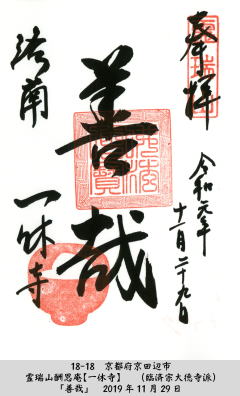 奉拝
令和元年
十一月二十九日
善哉
洛南
一休寺
18-18　京都府京田辺市
霊瑞山酬恩庵【一休寺】　（臨済宗大徳寺派）
「善哉」　2019年11月29日